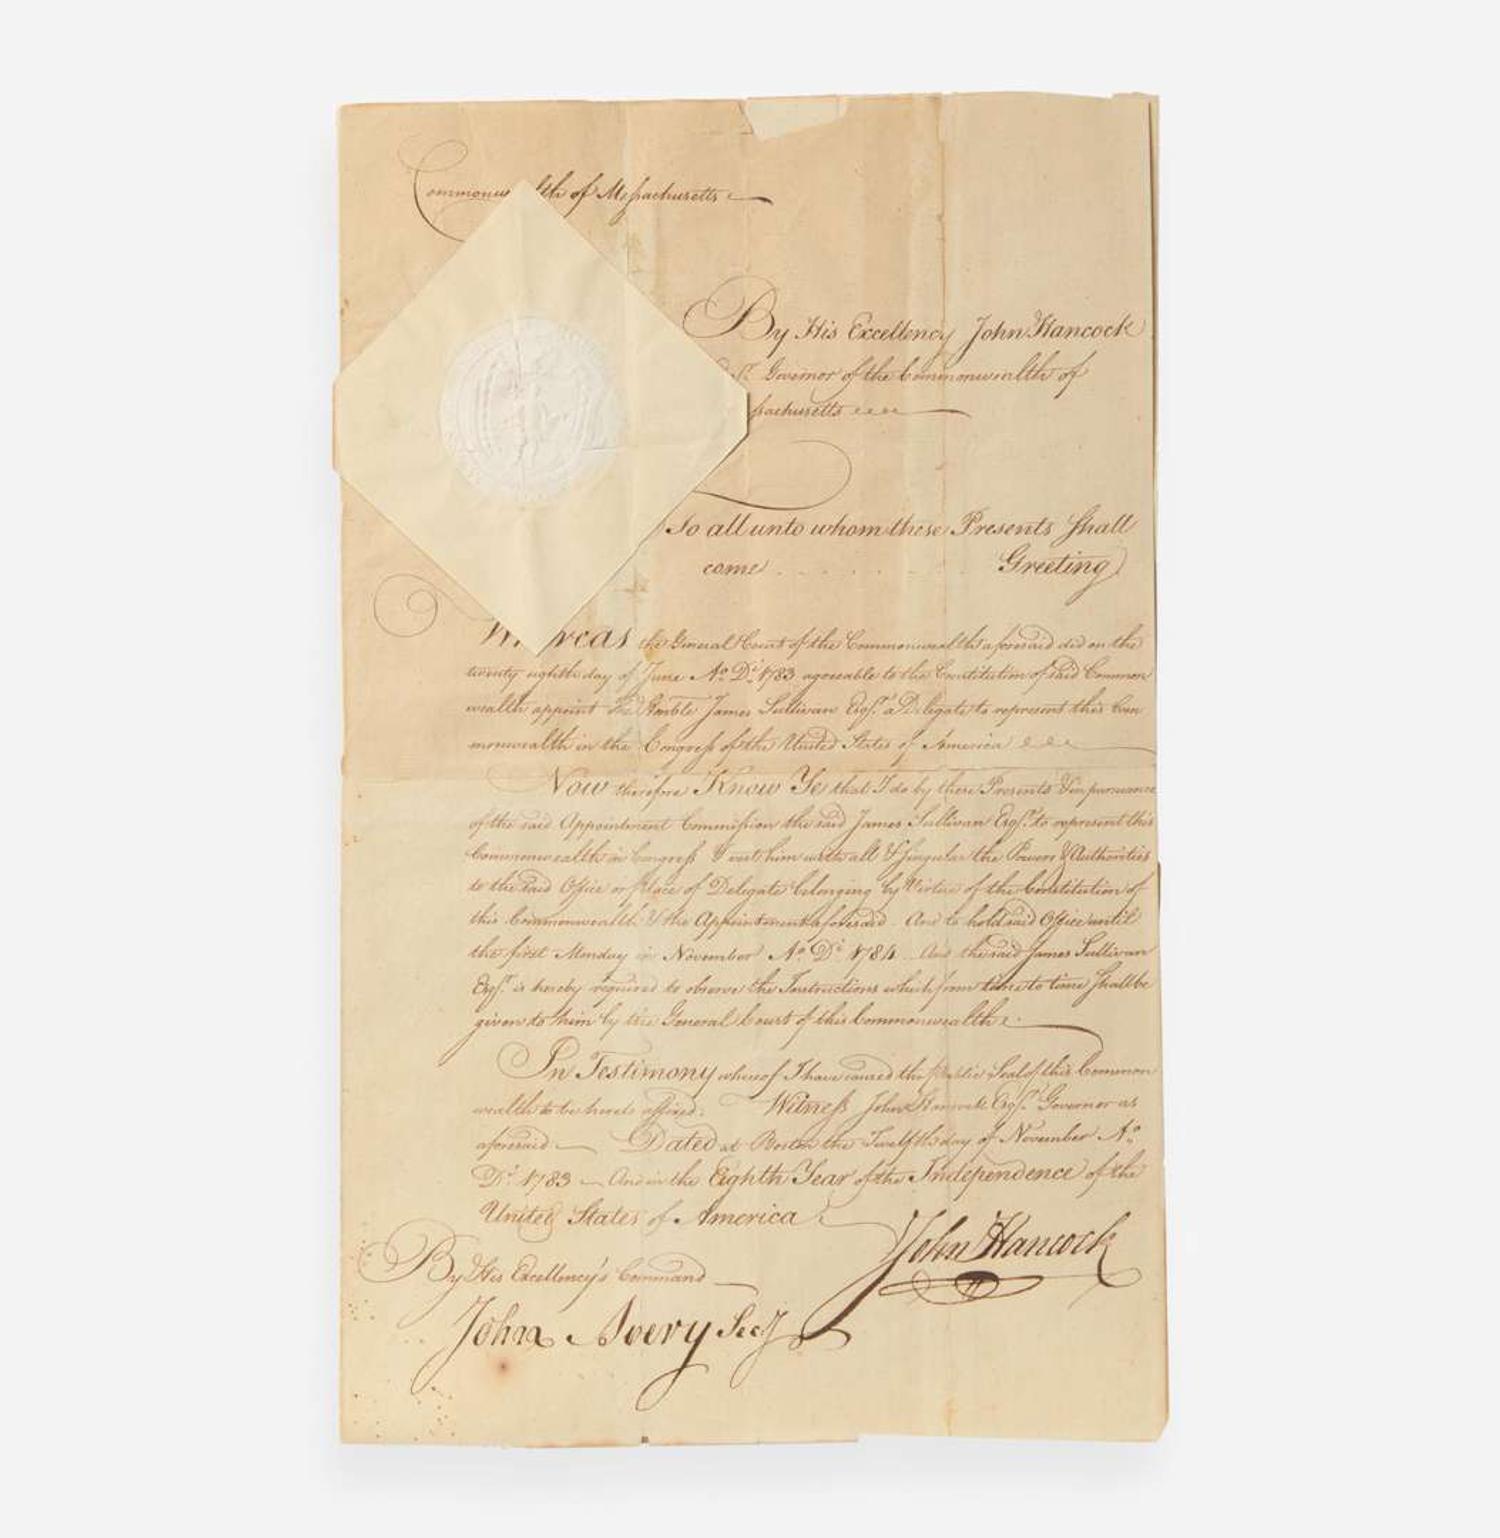 Commonwealth of Massachusetts
By His Excellency John Hancock
Esqr. Governor of the Commonwealth of
sachusetts
To all unto whom these Presents Shall
come Greeting
Whereas the General Court of the Commonwealth aforesaid did on the
twenty eighth day of June Ao. Di. 1783 agreeable to the Constitution of said Common
wealth appoint the Honble James Sullivan Esqr. a Delegate to represent this Com
monwealth in the Congress of the United States of America
Now therefore Know Ye that I do by these Presents & in pursuance
of the said Appointment Commission the said James Sullivan Esqr. to represent this
Commonwealth in Congress & vest him with all & singular the Powers & Authorities
to the said Office or place of Delegate belonging by Virtue of the Constitution of
this Commonwealth & the Appointment aforesaid. And to hold said Office until
the first Monday in November Ao. Di. 1784. And the said James Sullivan
Esqr. is hereby required to observe the Instructions which from time to time Shall be
given to him by the General Court of this Commonwealth.
In Testimony whereof I have caused the public Seal of this Common
wealth to be hereto affixed. Witness John Hancock Esqr. Governor as
aforesaid — Dated at Boston the Twelfth day of November Ao.
Di. 1783 — And in the Eighth Year of the Independence of the
United States of America
John Hancock
By His Excellency's Command
John Avery Secy